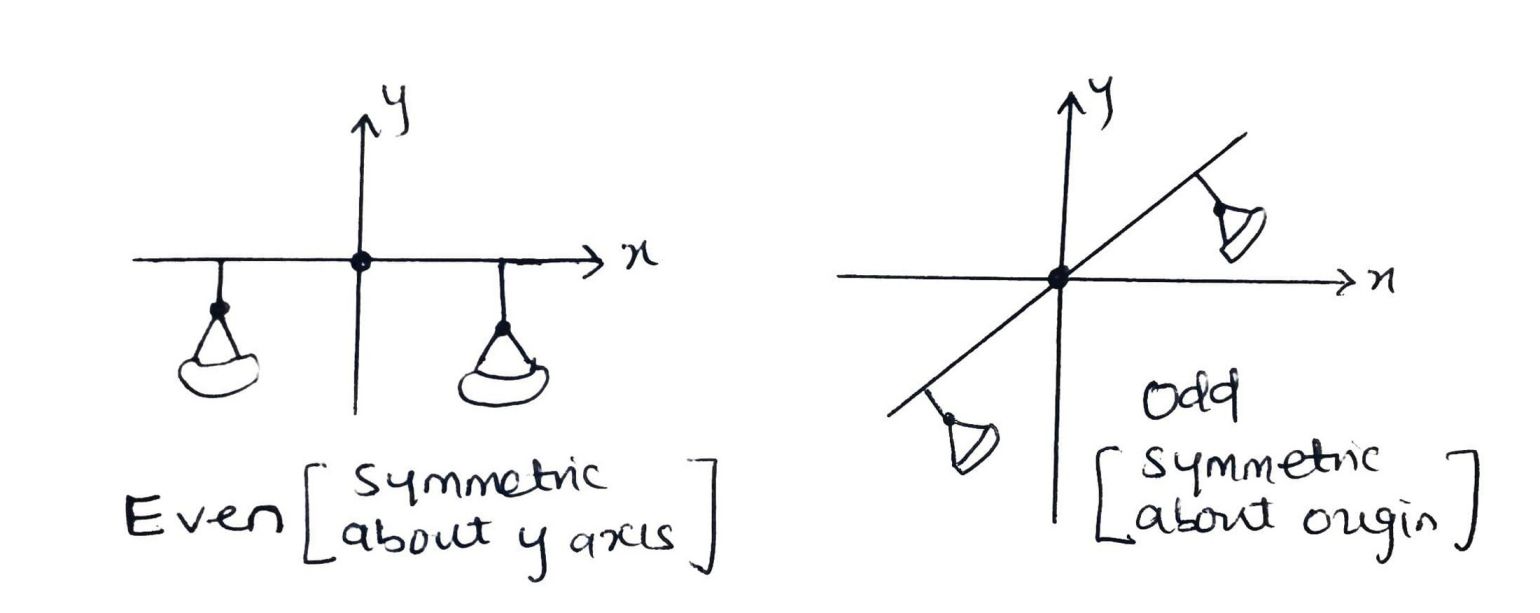 y
x
Even [ Symmetric
about y axis ]
y
x
Odd
[ symmetric
about origin ]